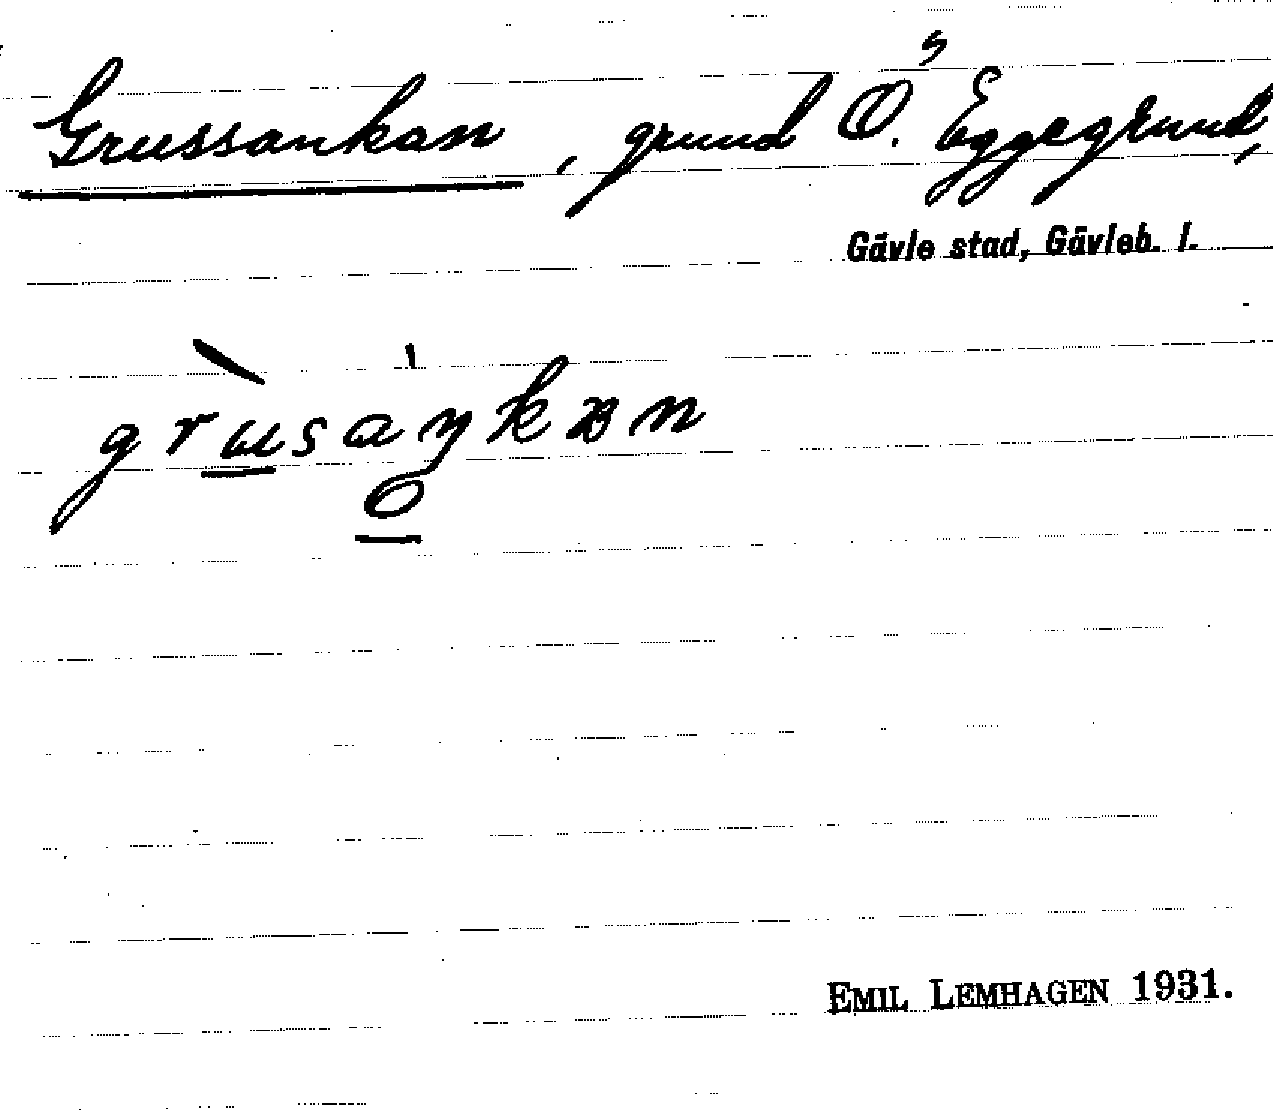 Grussankan, grund Ö.s Eggegrund,
Gävle stad, Gävleb. l.
EMIL LEMHAGEN 1931.